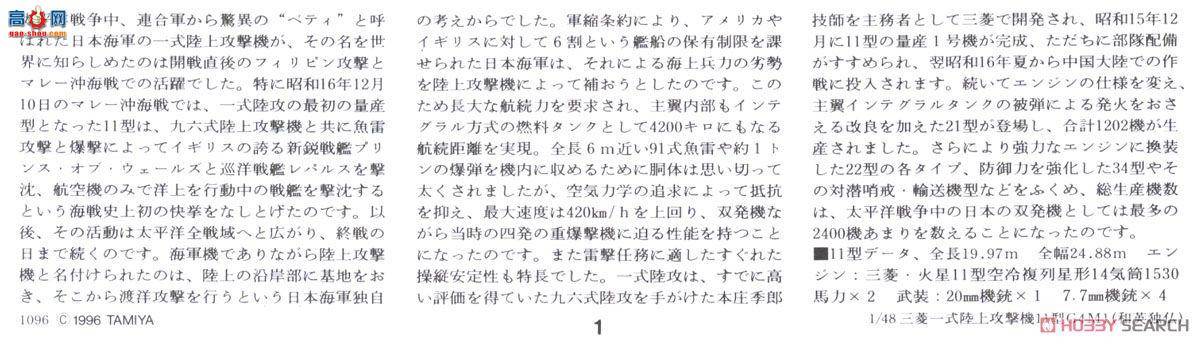 高网
gao-shou.com
戦争中、連合軍から驚異の“ベティ”と呼
ばれた日本海軍の一式陸上攻撃機が、その名を世
界に知らしめたのは開戦直後のフィリピン攻撃と
マレー沖海戦での活躍でした。特に昭和16年12月
10日のマレー沖海戦では、一式陸攻の最初の量産
型となった11型は、九六式陸上攻撃機と共に魚雷
攻撃と爆撃によってイギリスの誇る新鋭戦艦プリ
ンス・オブ・ウェールズと巡洋戦艦レパルスを撃
沈、航空機のみで洋上を行動中の戦艦を撃沈する
という海戦史上初の快挙をなしとげたのです。以
後、その活動は太平洋全戦域へと広がり、終戦の
日まで続くのです。海軍機でありながら陸上攻撃
機と名付けられたのは、陸上の沿岸部に基地をお
き、そこから渡洋攻撃を行うという日本海軍独自
の考えからでした。軍縮条約により、アメリカや
イギリスに対して6割という艦船の保有制限を課
せられた日本海軍は、それによる海上兵力の劣勢
を陸上攻撃機によって補おうとしたのです。この
ため長大な航続力を要求され、主翼内部もインテ
グラル方式の燃料タンクとして4200キロにもなる
航続距離を実現。全長6m近い91式魚雷や約1ト
ンの爆弾を機内に収めるために胴体は思い切って
太くされましたが、空気力学の追求によって抵抗
を抑え、最大速度は420km/hを上回り、双発機な
がら当時の四発の重爆撃機に迫る性能を持つこと
になったのです。また雷撃任務に適したすぐれた
操縦安定性も特長でした。一式陸攻は、すでに高
い評価を得ていた九六式陸攻を手がけた本庄季郎
技師を主務者として三菱で開発され、昭和15年12
月に11型の量産1号機が完成、ただちに部隊配備
がすすめられ、翌昭和16年夏から中国大陸での作
戦に投入されます。続いてエンジンの仕様を変え、
主翼インテグラルタンクの被弾による発火をおさ
える改良を加えた21型が登場し、合計1202機が生
産されました。さらにより強力なエンジンに換装
した22型の各タイプ、防御力を強化した34型やそ
の対潜哨戒・輸送機型などをふくめ、総生産機数
は、太平洋戦争中の日本の双発機としては最多の
2400機あまりを数えることになったのです。
■11型データ、全長19.97m 全幅24.88m エン
ジン:三菱・火星11型空冷複列星形14気筒1530
馬力×2 武装:20㎜機銃×1 7.7㎜機銃×4
1096 © 1996 TAMIYA
1
1/48 三菱一式陸上攻撃機11型G4M1(和英独仏)
HOBBY SEARCH